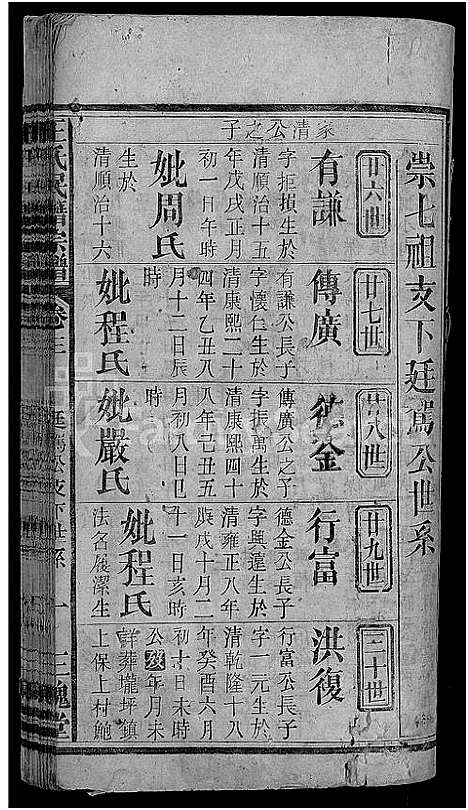 崇七祖支下廷鸞公世系
廿六世
家清公之子
有謙
字拒損生於
清順治十五
年戊戌正月
初一日午時
妣周氏
生於
清順治十六
廿七世
傳廣
有謙公長子
字懷仁生於
清康熙二十
四年乙丑八
月十二日辰
時
妣程氏
廿八世
德金
傳廣公之子
字振萬生於
清康熙四十
八年己丑五
月初八日巳
時
妣嚴氏
廿九世
行富
德金公長子
字興違生於
清雍正八年
庚戌十月二
十一日亥時
妣程氏
法名履潔生
三十世
洪復
行富公長子
字一元生於
清乾隆十八
年癸酉六月
初十日未時
公歿年月未
詳葬壠坪鎮
上保上村鮑
王氏民譜宗譜
卷三
廷鸞公支下世系
一
三槐堂